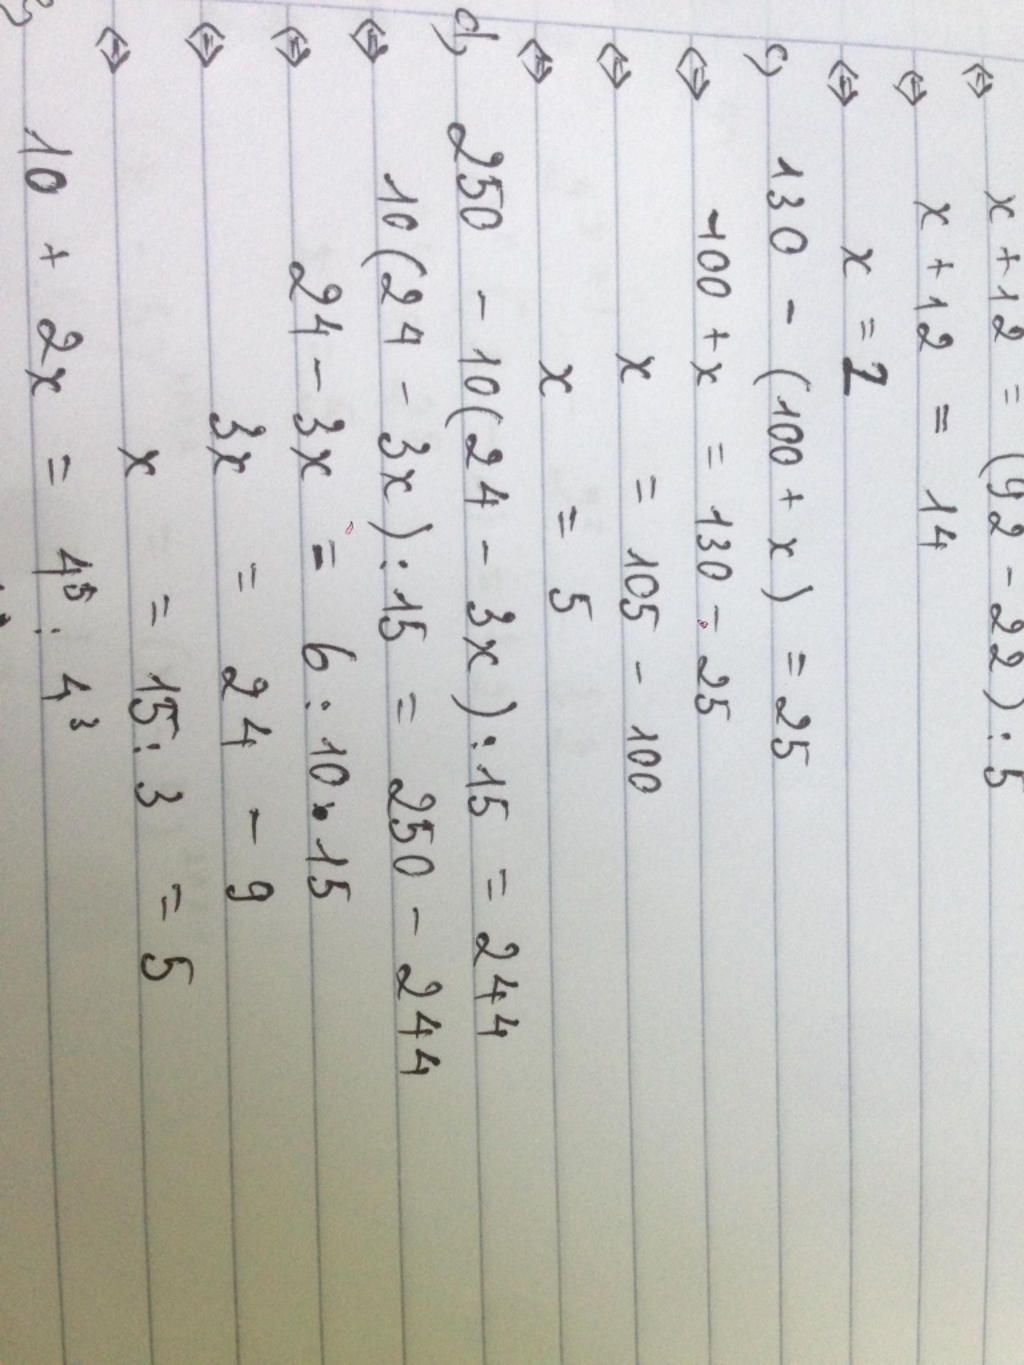 ⇔ x + 12 = (92 - 22) : 5
⇔ x + 12 = 14
⇔ x = 2
c, 130 - (100 + x) = 25
⇔ 100 + x = 130 - 25
⇔ x = 105 - 100
⇔ x = 5
d, 250 - 10(24 - 3x) : 15 = 244
⇔ 10(24 - 3x) : 15 = 250 - 244
⇔ 24 - 3x = 6 : 10 . 15
⇔ 3x = 24 - 9
⇔ x = 15 : 3 = 5
10 + 2x = 4⁵ : 4³